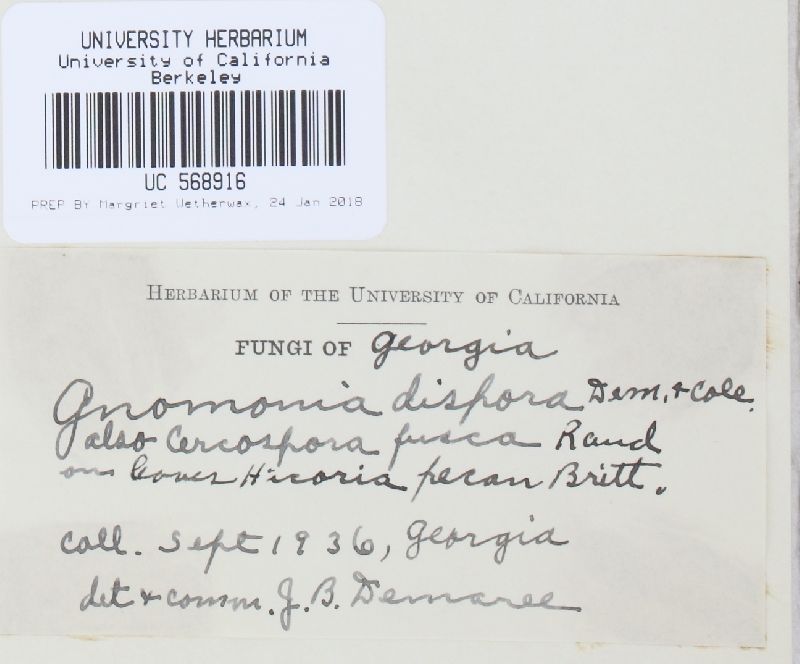 UNIVERSITY HERBARIUM
University of California
Berkeley
UC 568916
PREP BY Margriet Wetherwax, 24 Jan 2018
HERBARIUM OF THE UNIVERSITY OF CALIFORNIA
FUNGI OF Georgia
Gnomonia dispora Dem. & Cole.
also Cercospora fusca Rand
on Hicoria pecan Britt.
coll. Sept 1936, Georgia
det & comm. J. B. Demaree